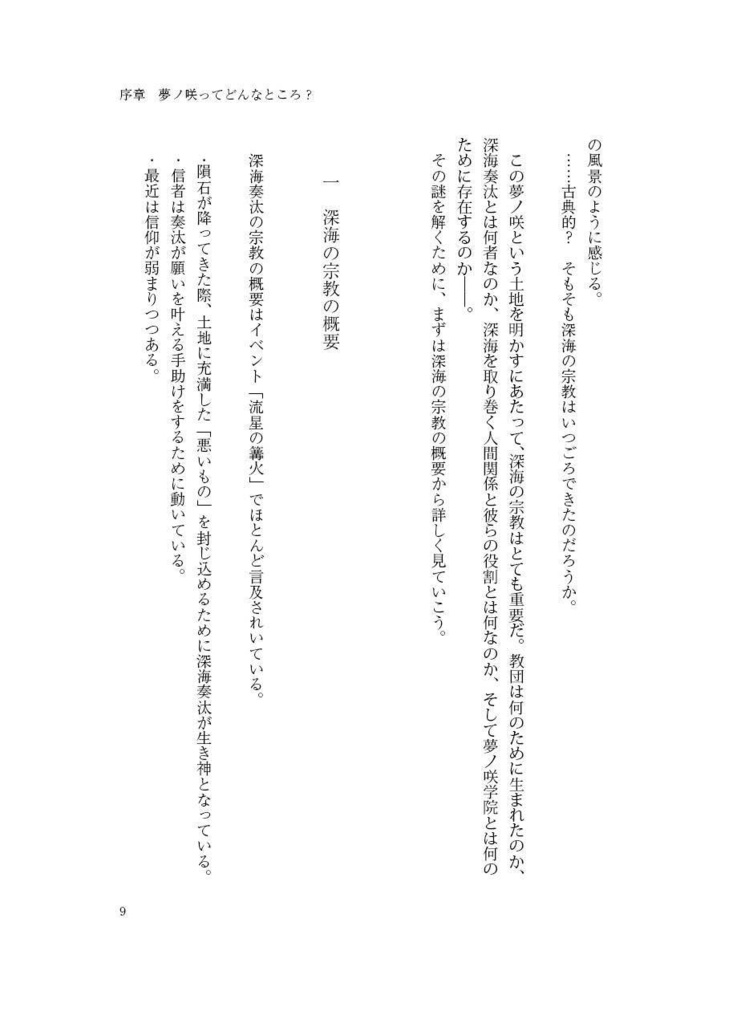 序章　夢ノ咲ってどんなところ？
の風景のように感じる。
……古典的？　そもそも深海の宗教はいつごろできたのだろうか。
この夢ノ咲という土地を明かすにあたって、深海の宗教はとても重要だ。教団は何のために生まれたのか、
深海奏汰とは何者なのか、深海を取り巻く人間関係と彼らの役割とは何なのか、そして夢ノ咲学院とは何の
ために存在するのか――。
その謎を解くために、まずは深海の宗教の概要から詳しく見ていこう。
一　深海の宗教の概要
深海奏汰の宗教の概要はイベント「流星の篝火」でほとんど言及されいている。
・隕石が降ってきた際、土地に充満した「悪いもの」を封じ込めるために深海奏汰が生き神となっている。
・信者は奏汰が願いを叶える手助けをするために動いている。
・最近は信仰が弱まりつつある。
9